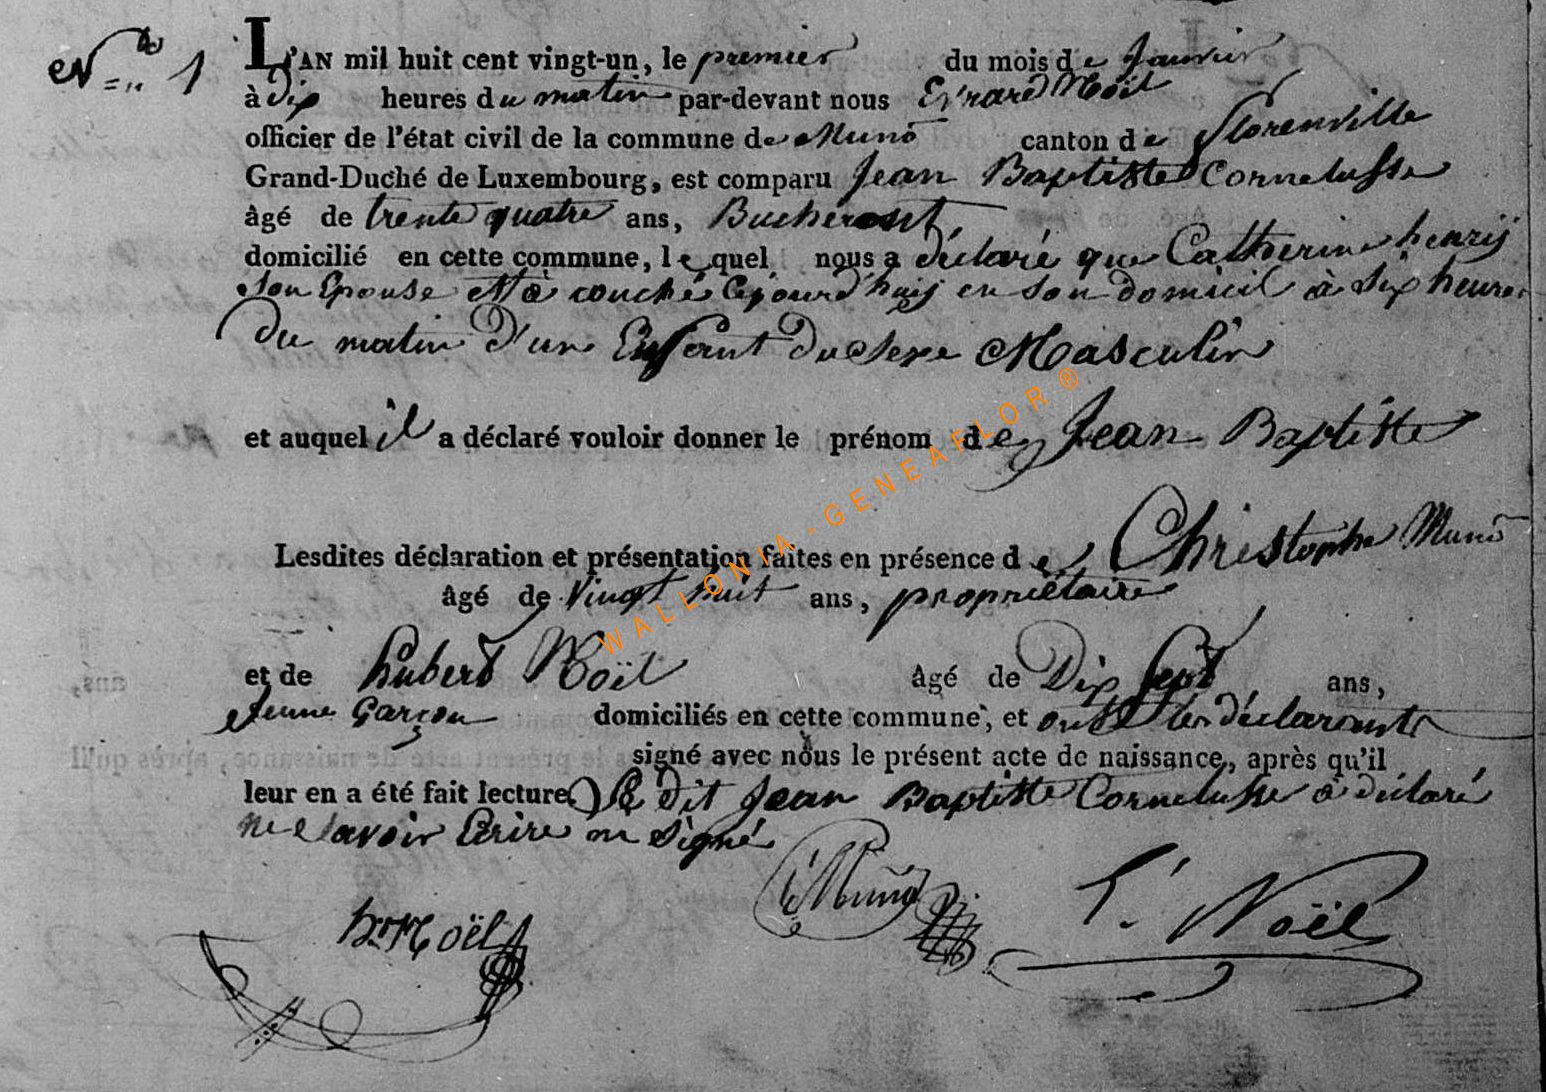 N.° 1
L'AN mil huit cent vingt-un, le premier du mois de Janvier
à dix heures du matin par-devant nous Evrard Noël
officier de l'état civil de la commune de Muno canton de Florenville
Grand-Duché de Luxembourg, est comparu Jean Baptiste Cornelusse
âgé de trente quatre ans, Bucheron
domicilié en cette commune, lequel nous a déclaré que Catherine henrij
son Epouse est acouchée cejourd'huij en son domicil à six heures
du matin d'un Enfant du sexe Masculin
et auquel il a déclaré vouloir donner le prénom de Jean Baptiste
Lesdites déclaration et présentation faites en présence de Christophe Muno
âgé de vingt huit ans, propriétaire
et de hubert Noël âgé de Dix sept ans,
Jeune Garçon domiciliés en cette commune, et ont les déclarants
signé avec nous le présent acte de naissance, après qu'il
leur en a été fait lecture. Le dit Jean Baptiste Cornelusse a déclaré
ne savoir Ecrire ni signé
h. Noël Muno E. Noël
WALLONIA-GENEAFLOR®